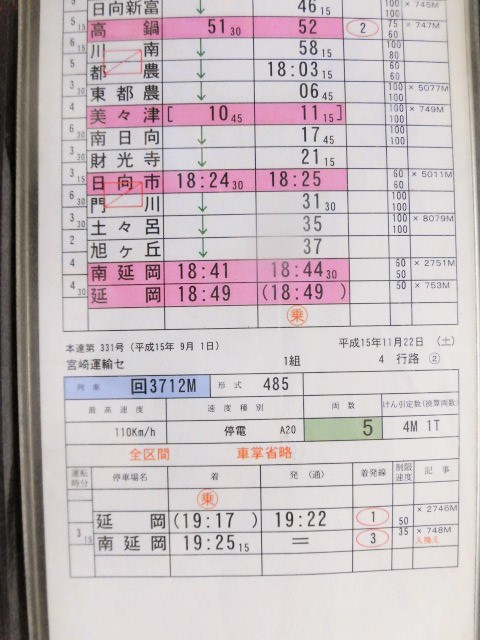 日向新富 ↓ 46 15 100 100 × 745M
5 15 高鍋 51 30 52 ② 75 60 × 747M
6 川南 ↓ 58 15 100 80
5 都農 ↓ 18:03 15 100 100
3 30 東都農 ↓ 06 45 100 100 × 5077M
4 美々津 [ 10 45 11 15 ] 100 100 × 749M
6 30 南日向 ↓ 17 45 100 100
3 30 財光寺 ↓ 21 15
3 15 日向市 18:24 30 18:25 60 60 × 5011M
6 30 門川 ↓ 31 30 100 100
3 30 土々呂 ↓ 35 100 100 × 8079M
2 旭ヶ丘 ↓ 37
4 南延岡 18:41 18:44 30 60 50 × 2751M
4 30 延岡 18:49 (18:49 ) 50 × 753M
乗
本達第 331号 (平成15年 9月 1日) 平成15年11月22日 (土)
宮崎運輸セ 1組 4 行路 ②
列車 回3712M 形式 485
最高速度 速度種別 両数 けん引定数(換算両数)
110Km/h 停電 A20 5 4M 1T
全区間 車掌省略
運転時分 停車場名 着 発 (通) 着発線 制限速度 記事
乗
延岡 (19:17 ) 19:22 1 50 × 2746M
3 15 南延岡 19:25 15 = 3 35 × 748M
入換え